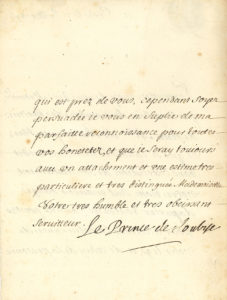 qui est prez de vous, cependant soyez
persuadée je vous en suplie de ma
parfaitte reconnaissance pour toutes
vos honetetez, et que je seray toujours
avec un attachement et une estime tres
particuliere et tres distinguée Mademoiselle
Votre tres humble et tres obeissant
serviteur. Le Prince de Soubise